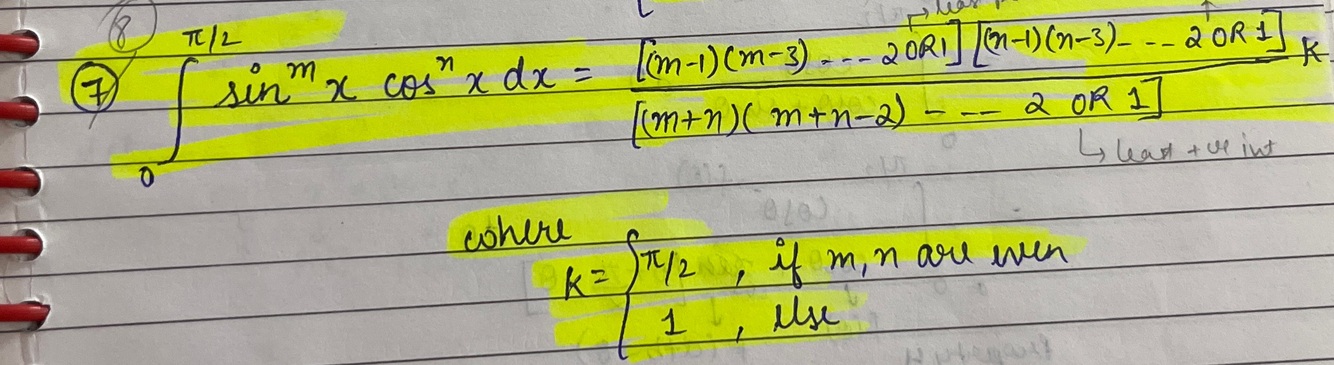 8
(7) ∫₀^{π/2} sin^m x cos^n x dx = [(m-1)(m-3) --- 2 OR 1] [(n-1)(n-3) --- 2 OR 1] / [(m+n)(m+n-2) --- 2 OR 1] K
↳ least +ve int
where
K = { π/2 , if m, n are even
1 , else